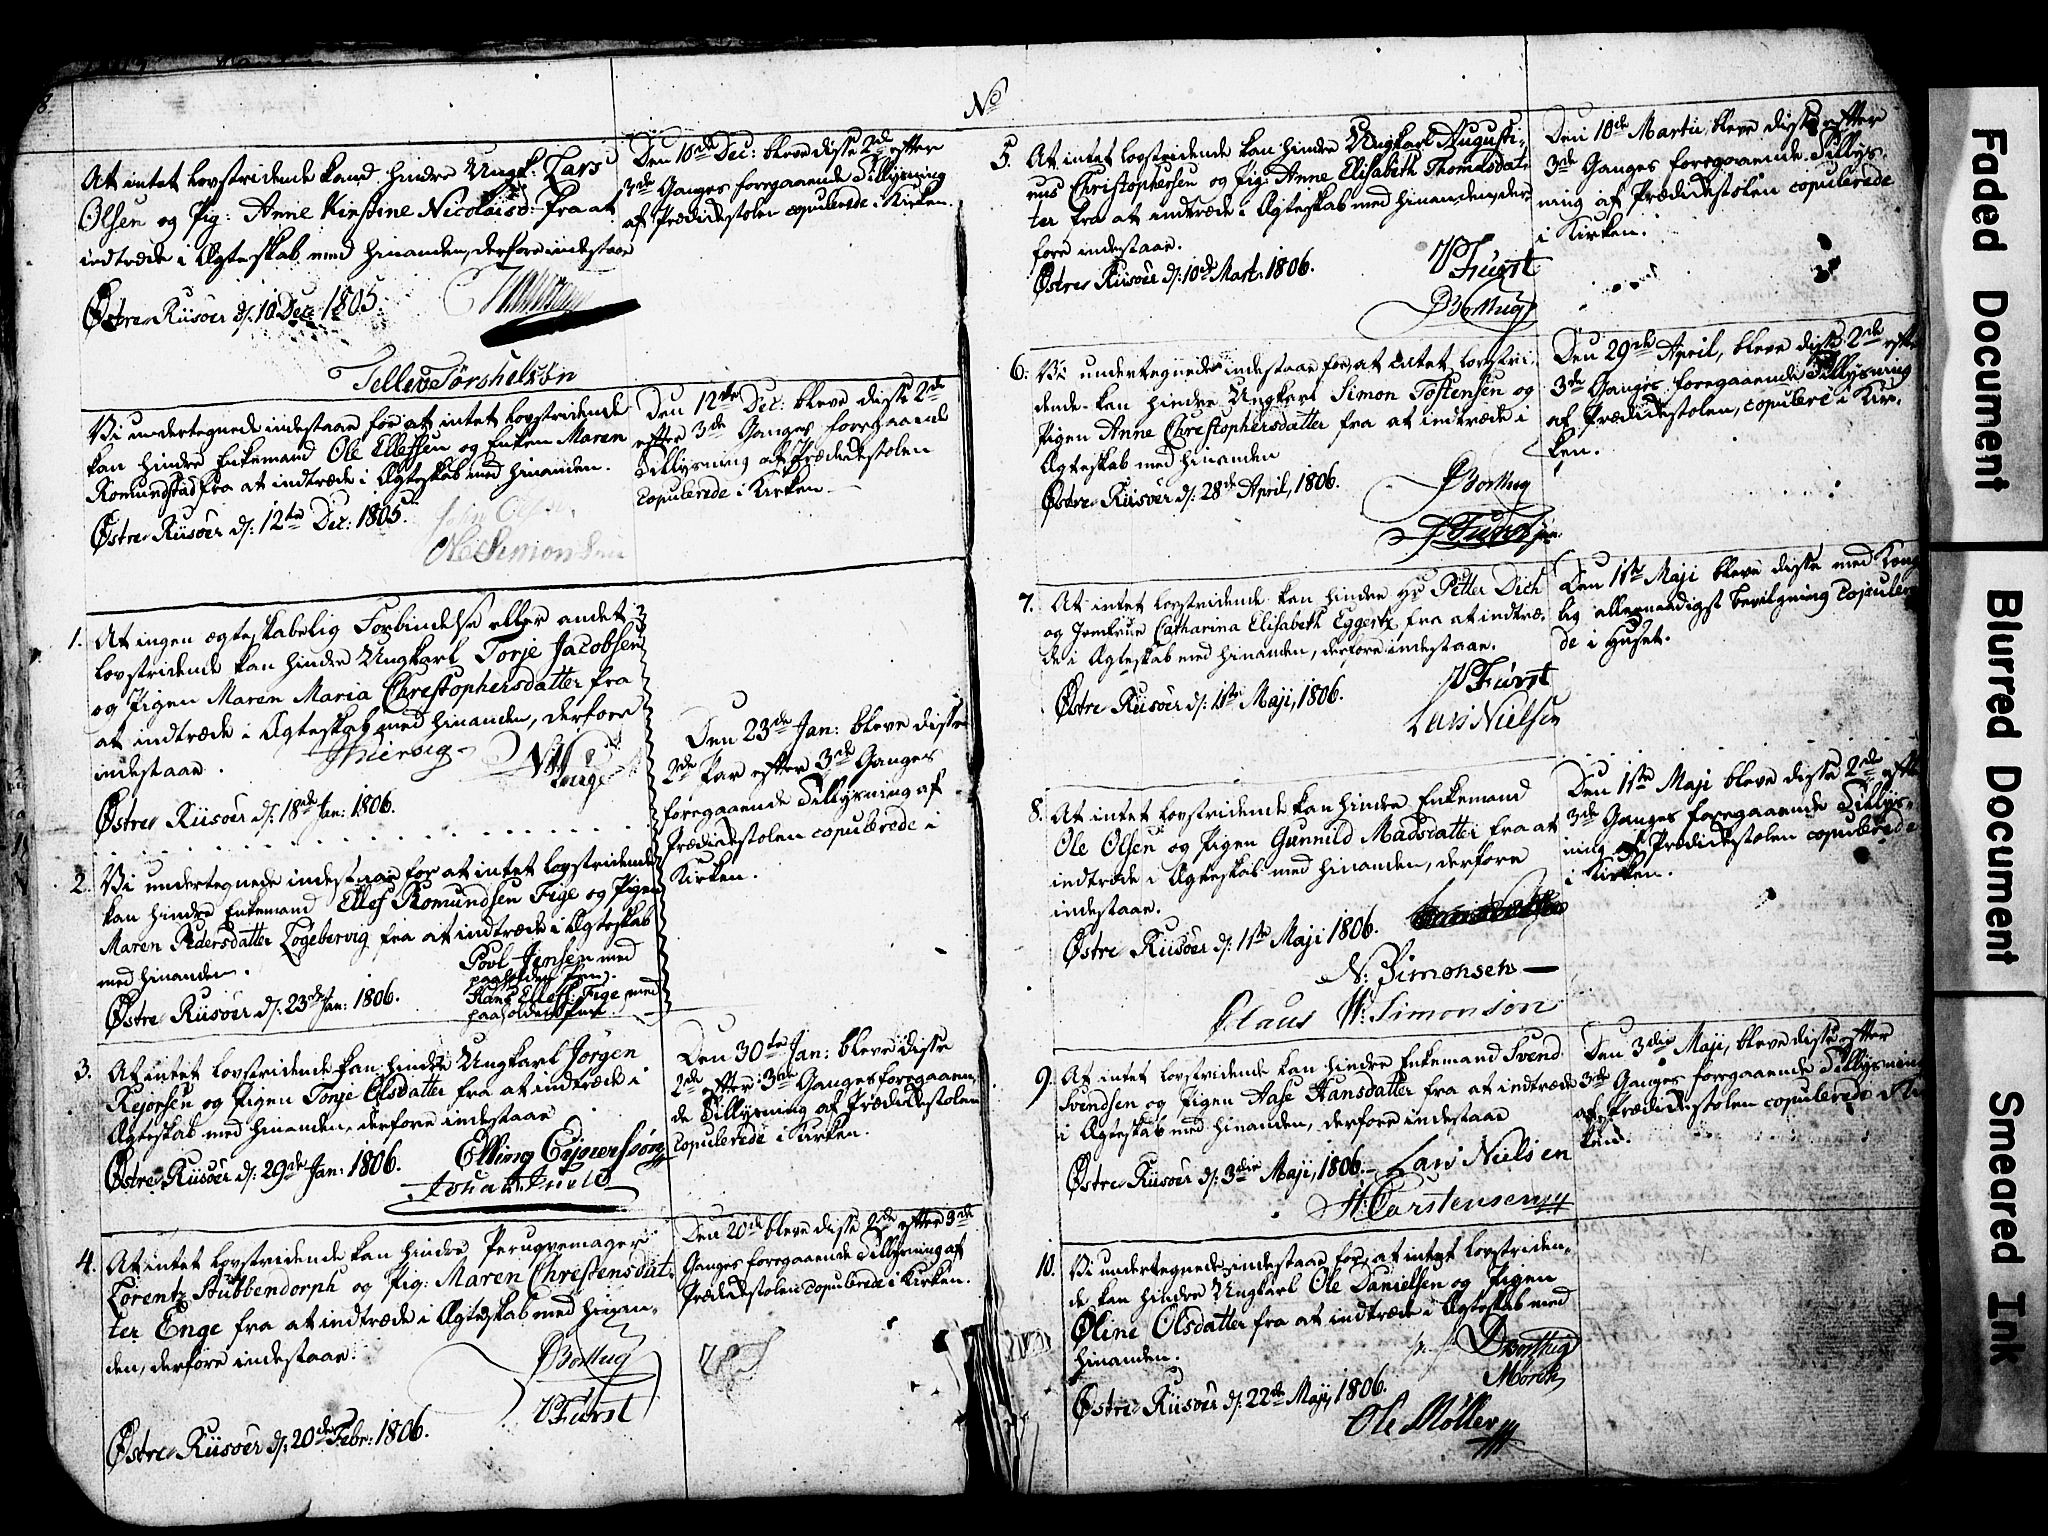 8.
At intet lovstridende kand hindre Ungk: Lars
Olsen og Pig: Anne Kirstine Nicolaisd: fra at
indtræde i Ægteskab med hinanden, derfore indestaar
Østre Riisöer d: 10 Dec: 1805.
Tellev Törshelsön
Den 10de Dec: bleve disse 2de efter
3de Ganges foregaaende Tillysning
af Prædikestolen copulerede i Kirken.
Vi undertegnede indestaar for at intet lovstridende
kan hindre Enkemand Ole Ellefsen og Enken Maren
Romundstad fra at indtræde i Ægteskab med hinanden.
Østre Riisöer d: 12te Dec: 1805.
Ole Simonsen
Den 12te Dec: bleve disse 2de
efter 3de Ganges foregaaende
Tillysning af Prædikestolen
copulerede i Kirken.
1. At ingen ægteskabelig Forbindelse eller andet
lovstridende kan hindre Ungkarl Torje Jacobsen
og Pigen Maren Maria Christophersdatter fra
at indtræde i Ægteskab med hinanden, derfore
indestaar.
Østre Riisöer d: 18de Jan: 1806.
2. Vi undertegnede indestaar for at intet lovstridende
kan hindre Enkemand Ellef Romundsen Fige og Pigen
Maren Pedersdatter Logebervig fra at indtræde i Ægteskab
med hinanden.
Povl Jensen med
paaholden Pen.
Hans Ellefs: Fige med
paaholden Pen.
Østre Riisöer d: 23de Jan: 1806.
Den 23de Jan: bleve disse
2de Par efter 3de Ganges
foregaaende Tillysning af
Prædikestolen copulerede i
Kirken.
3. At intet lovstridende kan hindre Ungkarl Jörgen
Rejorsen og Pigen Tonje Olsdatter fra at indtræde i
Ægteskab med hinanden, derfore indestaar
Østre Riisöer d: 29de Jan: 1806.
Elling Ejversön
Den 30te Jan: bleve disse
2de efter 3de Ganges foregaaen-
de Tillysning af Prædikestolen
copulerede i Kirken.
4. At intet lovstridende kan hindre Peruqvemager
Lorentz Stubbendorph og Pig: Maren Christensdat-
ter Enge fra at indtræde i Ægteskab med hinan-
den, derfore indestaar.
PBorthig
VFürst
Østre Riisöer d: 20de Febr: 1806.
Den 20de bleve disse 2de efter 3de
Ganges foregaaende Tillysning af
Prædikestolen copulerede i Kirken.
No
5. At intet lovstridende kan hindre Ungkarl Augusti-
nus Christophersen og Pig: Anne Elisabeth Thomasdat-
ter fra at indtræde i Ægteskab med hinanden, der-
fore indestaar.
Østre Riisöer d: 10de Mart: 1806.
VFürst
PBorthig
Den 10de Martii bleve disse efter
3de Ganges foregaaende Tillys-
ning af Prædikestolen copulerede
i Kirken.
6. Vi undertegnede indestaar for, at intet lovstri-
dende kan hindre Ungkarl Simon Tostensen og
Pigen Anne Christophersdatter fra at indtræde i
Ægteskab med hinanden
Østre Riisöer d: 28de April, 1806.
PBorthig
Den 29de April, bleve disse 2de efter
3de Ganges foregaaende Tillysning
af Prædikestolen, copulere i Kir-
ken.
7. At intet lovstridende kan hindre Hr Petter Dich
og Jomfrue Catharina Elisabeth Eggertz fra at indtræ-
de i Ægteskab med hinanden, derfore indestaar.
Østre Riisöer d: 1ste Maji, 1806.
VFürst
Lars Nielsen
Den 1ste Maji bleve disse med Kong-
lig allernaadigst Bevilgning copulere-
de i Huset.
8. At intet lovstridende kan hindre Enkemand
Ole Olsen og Pigen Gunnild Madsdatter fra at
indtræde i Ægteskab med hinanden, derfore
indestaar.
Østre Riisöer d: 1ste Maji 1806.
N: Simonsen
Claus W: Simonson
Den 1ste Maji bleve disse 2de efter
3de Ganges foregaaende Tillys-
ning af Prædikestolen copulerede
i Kirken.
9. At intet lovstridende kan hindre Enkemand Svend
Svendsen og Pigen Aase Hansdatter fra at indtræde
i Ægteskab med hinanden, derfore indestaar
Østre Riisöer d: 3die Maji, 1806.
Lars Nielsen
H: Carstensen
Den 3die Maji, bleve disse efter
3de Ganges foregaaende Tillysning
af Prædikestolen copulerede i Kir-
ken.
10. Vi undertegnede indestaar for, at intet lovstriden-
de kan hindre Ungkarl Ole Danielsen og Pigen
Øline Olsdatter fra at indtræde i Ægteskab med
hinanden.
PBorthig
Mörch
Østre Riisöer d: 22de Maji 1806.
Ole Möller
Faded Document
Blurred Document
Smeared Ink